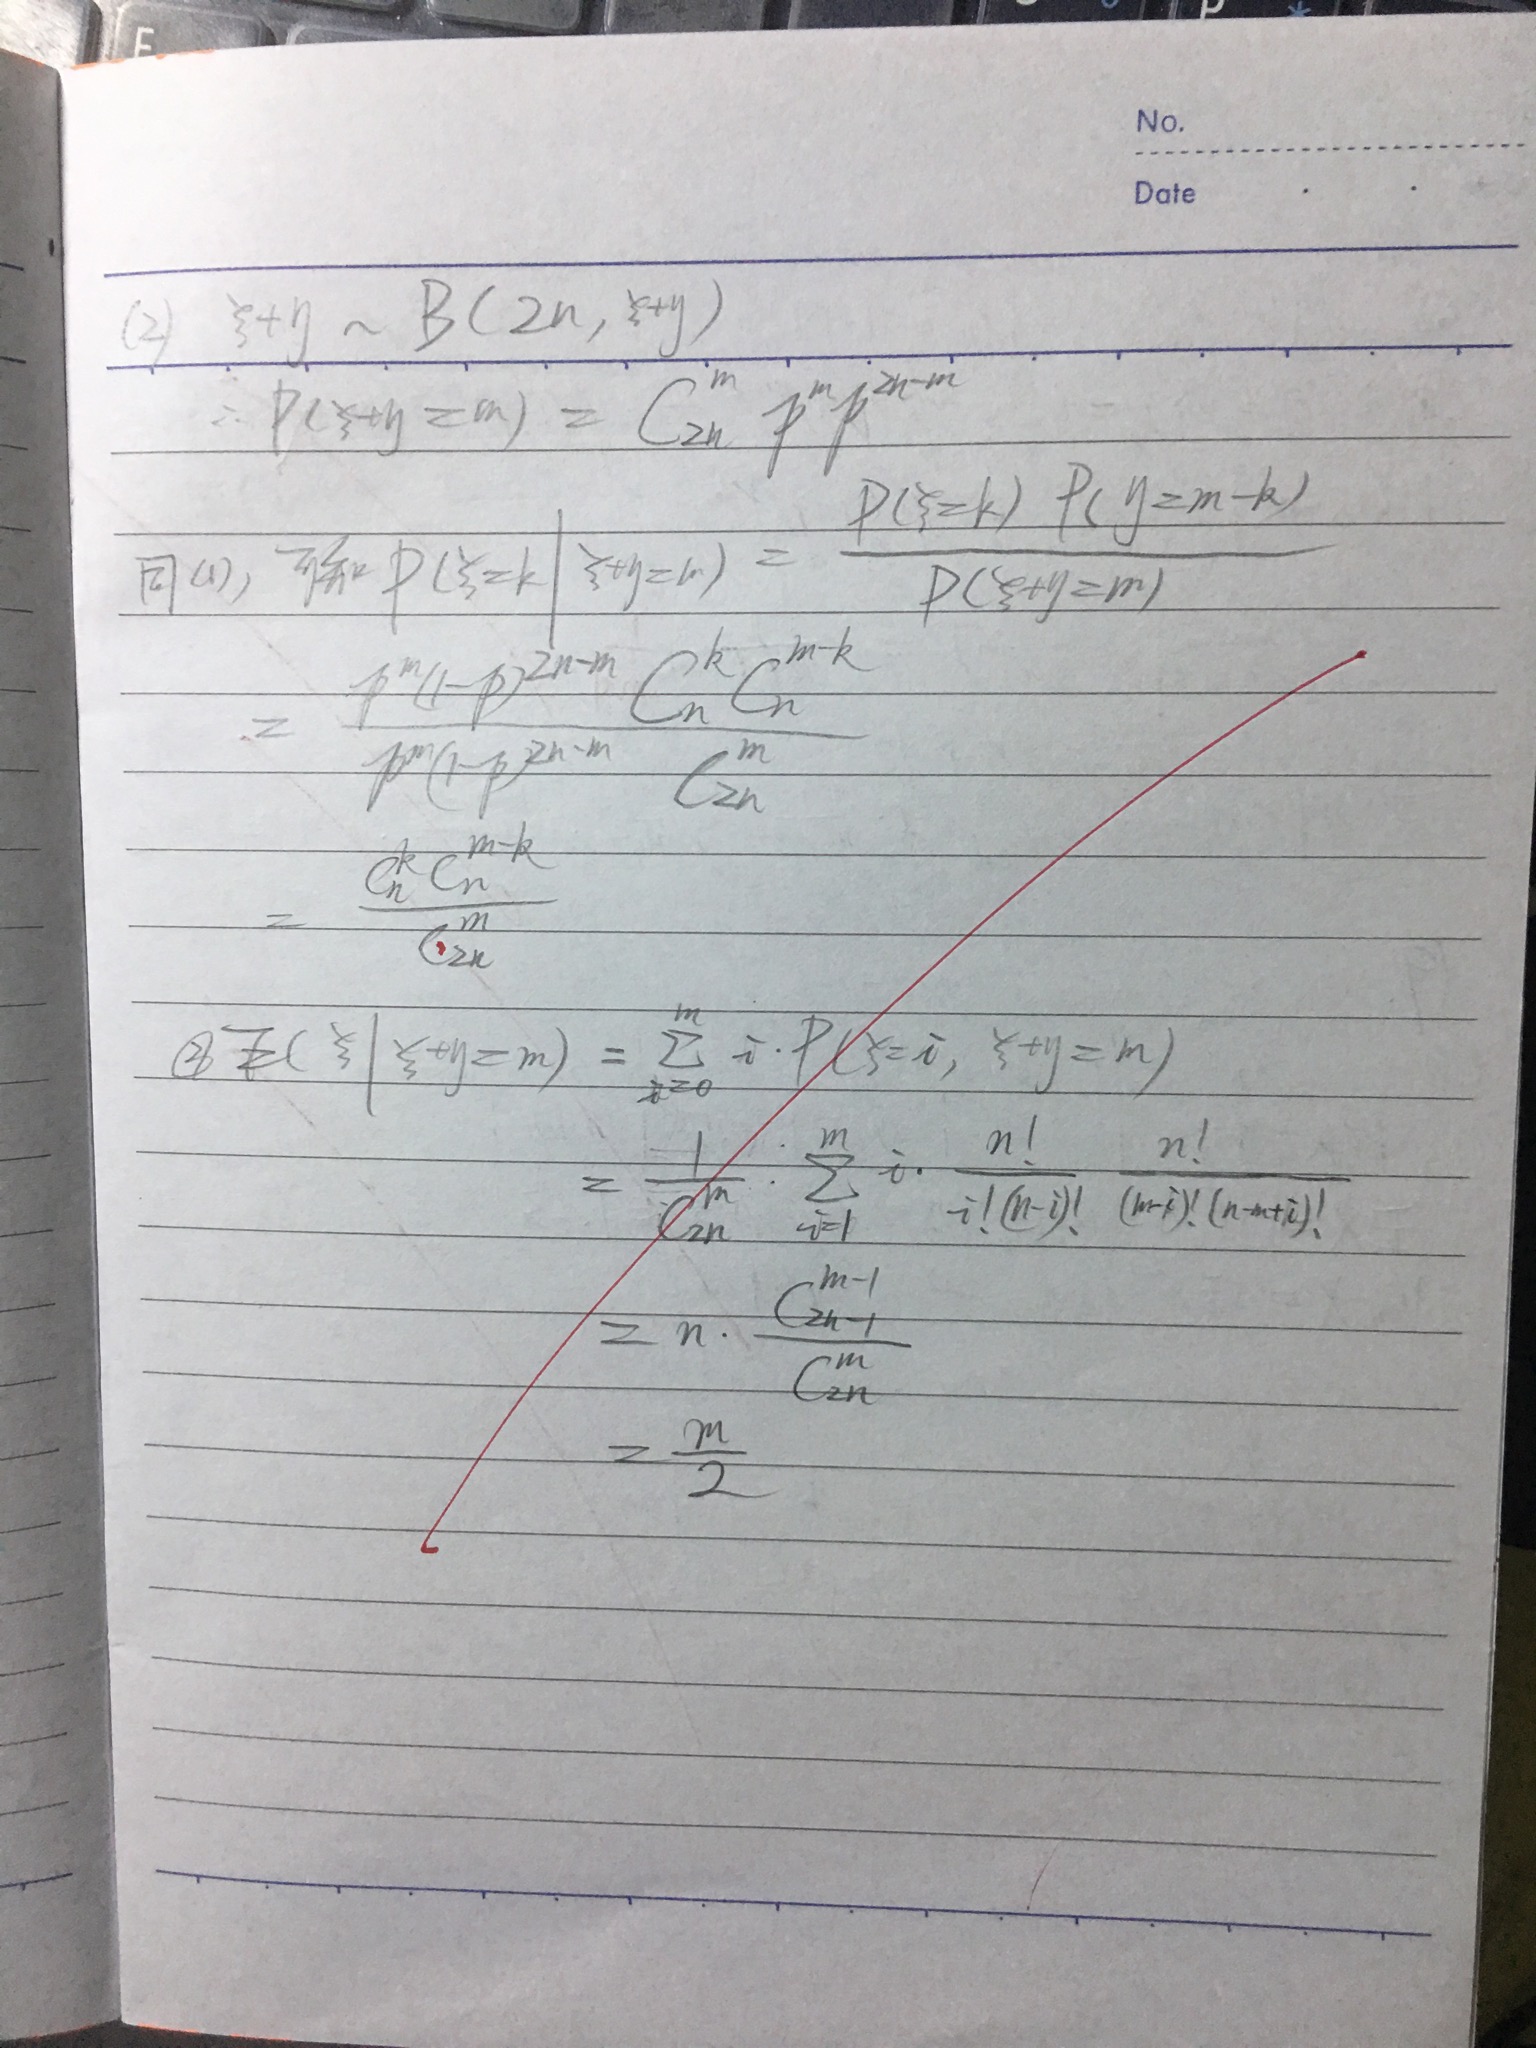 No.
Date
(2) ξ+y ~ B(2n, ξ+y)
∴ P(ξ+y=m) = C_{2n}^{m} p^{m} p^{2n-m}
同(1), 可知 P(ξ=k | ξ+y=m) = \frac{P(ξ=k) P(y=m-k)}{P(ξ+y=m)}
= \frac{p^{m}(1-p)^{2n-m} C_{n}^{k} C_{n}^{m-k}}{p^{m}(1-p)^{2n-m} C_{2n}^{m}}
= \frac{C_{n}^{k} C_{n}^{m-k}}{C_{2n}^{m}}
② E(ξ | ξ+y=m) = \sum_{i=0}^{m} i · P(ξ=i, ξ+y=m)
= \frac{1}{C_{2n}^{m}} · \sum_{i=1}^{m} i · \frac{n!}{i!(n-i)!} \frac{n!}{(m-i)!(n-m+i)!}
= n · \frac{C_{2n-1}^{m-1}}{C_{2n}^{m}}
= \frac{m}{2}